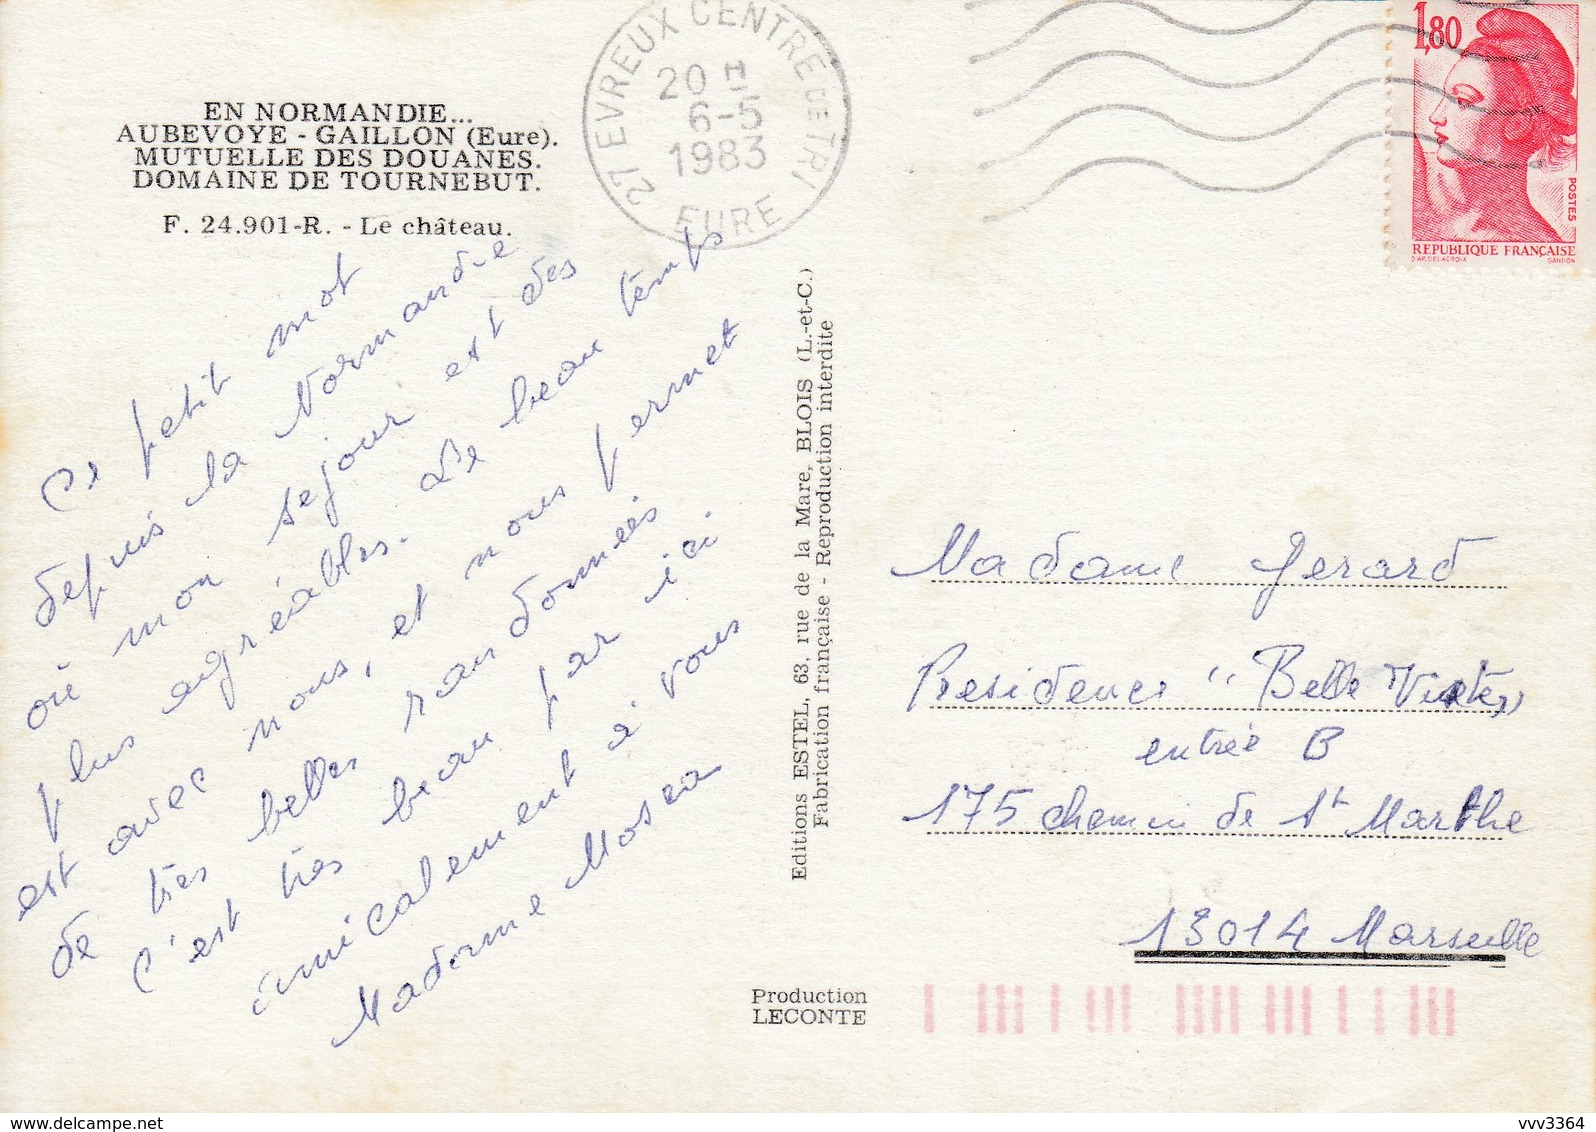 EN NORMANDIE...
AUBEVOYE - GAILLON (Eure).
MUTUELLE DES DOUANES.
DOMAINE DE TOURNEBUT.
F. 24.901-R. - Le château.
Ce petit mot
depuis la Normandie
où mon sejour est des
plus agréables. Le beau temps
est avec nous, et nous permet
de très belles randonnées
c'est très beau par ici
amicalement à vous
Madame Mosca
27 EVREUX CENTRE DE TRI
20 H
6-5
1983
EURE
1,80
POSTES
REPUBLIQUE FRANÇAISE
D'AP. DELACROIX
GANDON
Editions ESTEL, 63, rue de la Mare, BLOIS (L.-et-C.)
Fabrication française - Reproduction interdite
Madame Gerard
Residence "Belle
entrée B
175 chemin de St Marthe
13014 Marseille
Production
LECONTE
delcampe.net
vvv3364